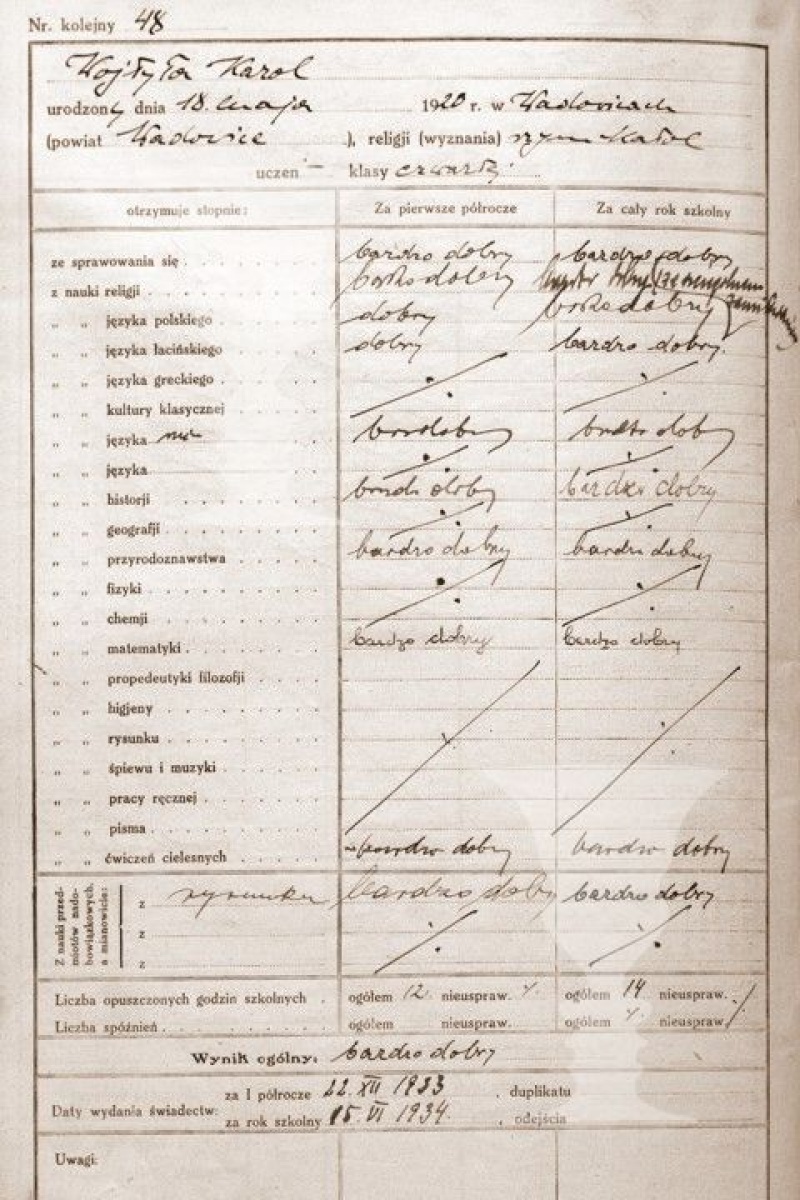 Nr. kolejny 48
Wojtyła Karol
urodzony dnia 18. maja 1920 r. w Wadowicach
(powiat Wadowice ), religji (wyznania) rzym Katol
uczeń — klasy czwartej
otrzymuje stopnie: Za pierwsze półrocze Za cały rok szkolny
ze sprawowania się bardzo dobry bardzo dobry
z nauki religji bardzo dobry
„ „ języka polskiego dobry
„ „ języka łacińskiego dobry bardzo dobry.
„ „ języka greckiego
„ „ kultury klasycznej
„ „ języka niem bardzo dobry bardzo dobry
„ „ języka
„ „ historji bardzo dobry bardzo dobry
„ „ geografji
„ „ przyrodoznawstwa bardzo dobry bardzo dobry
„ „ fizyki
„ „ chemji
„ „ matematyki bardzo dobry bardzo dobry
„ „ propedeutyki filozofji
„ „ higjeny
„ „ rysunku
„ „ śpiewu i muzyki
„ „ pracy ręcznej
„ „ pisma
„ „ ćwiczeń cielesnych bardzo dobry bardzo dobry
Z nauki przed-
miotów nado-
bowiązkowych,
a mianowicie:
z rysunku bardzo dobry bardzo dobry
z
z
Liczba opuszczonych godzin szkolnych . ogółem 12 nieuspraw. ogółem 14 nieuspraw.
Liczba spóźnień ogółem nieuspraw. ogółem nieuspraw.
Wynik ogólny: bardzo dobry
Daty wydania świadectw: za I półrocze 22. XII 1933 , duplikatu
za rok szkolny 15. VI 1934. , odejścia
Uwagi: